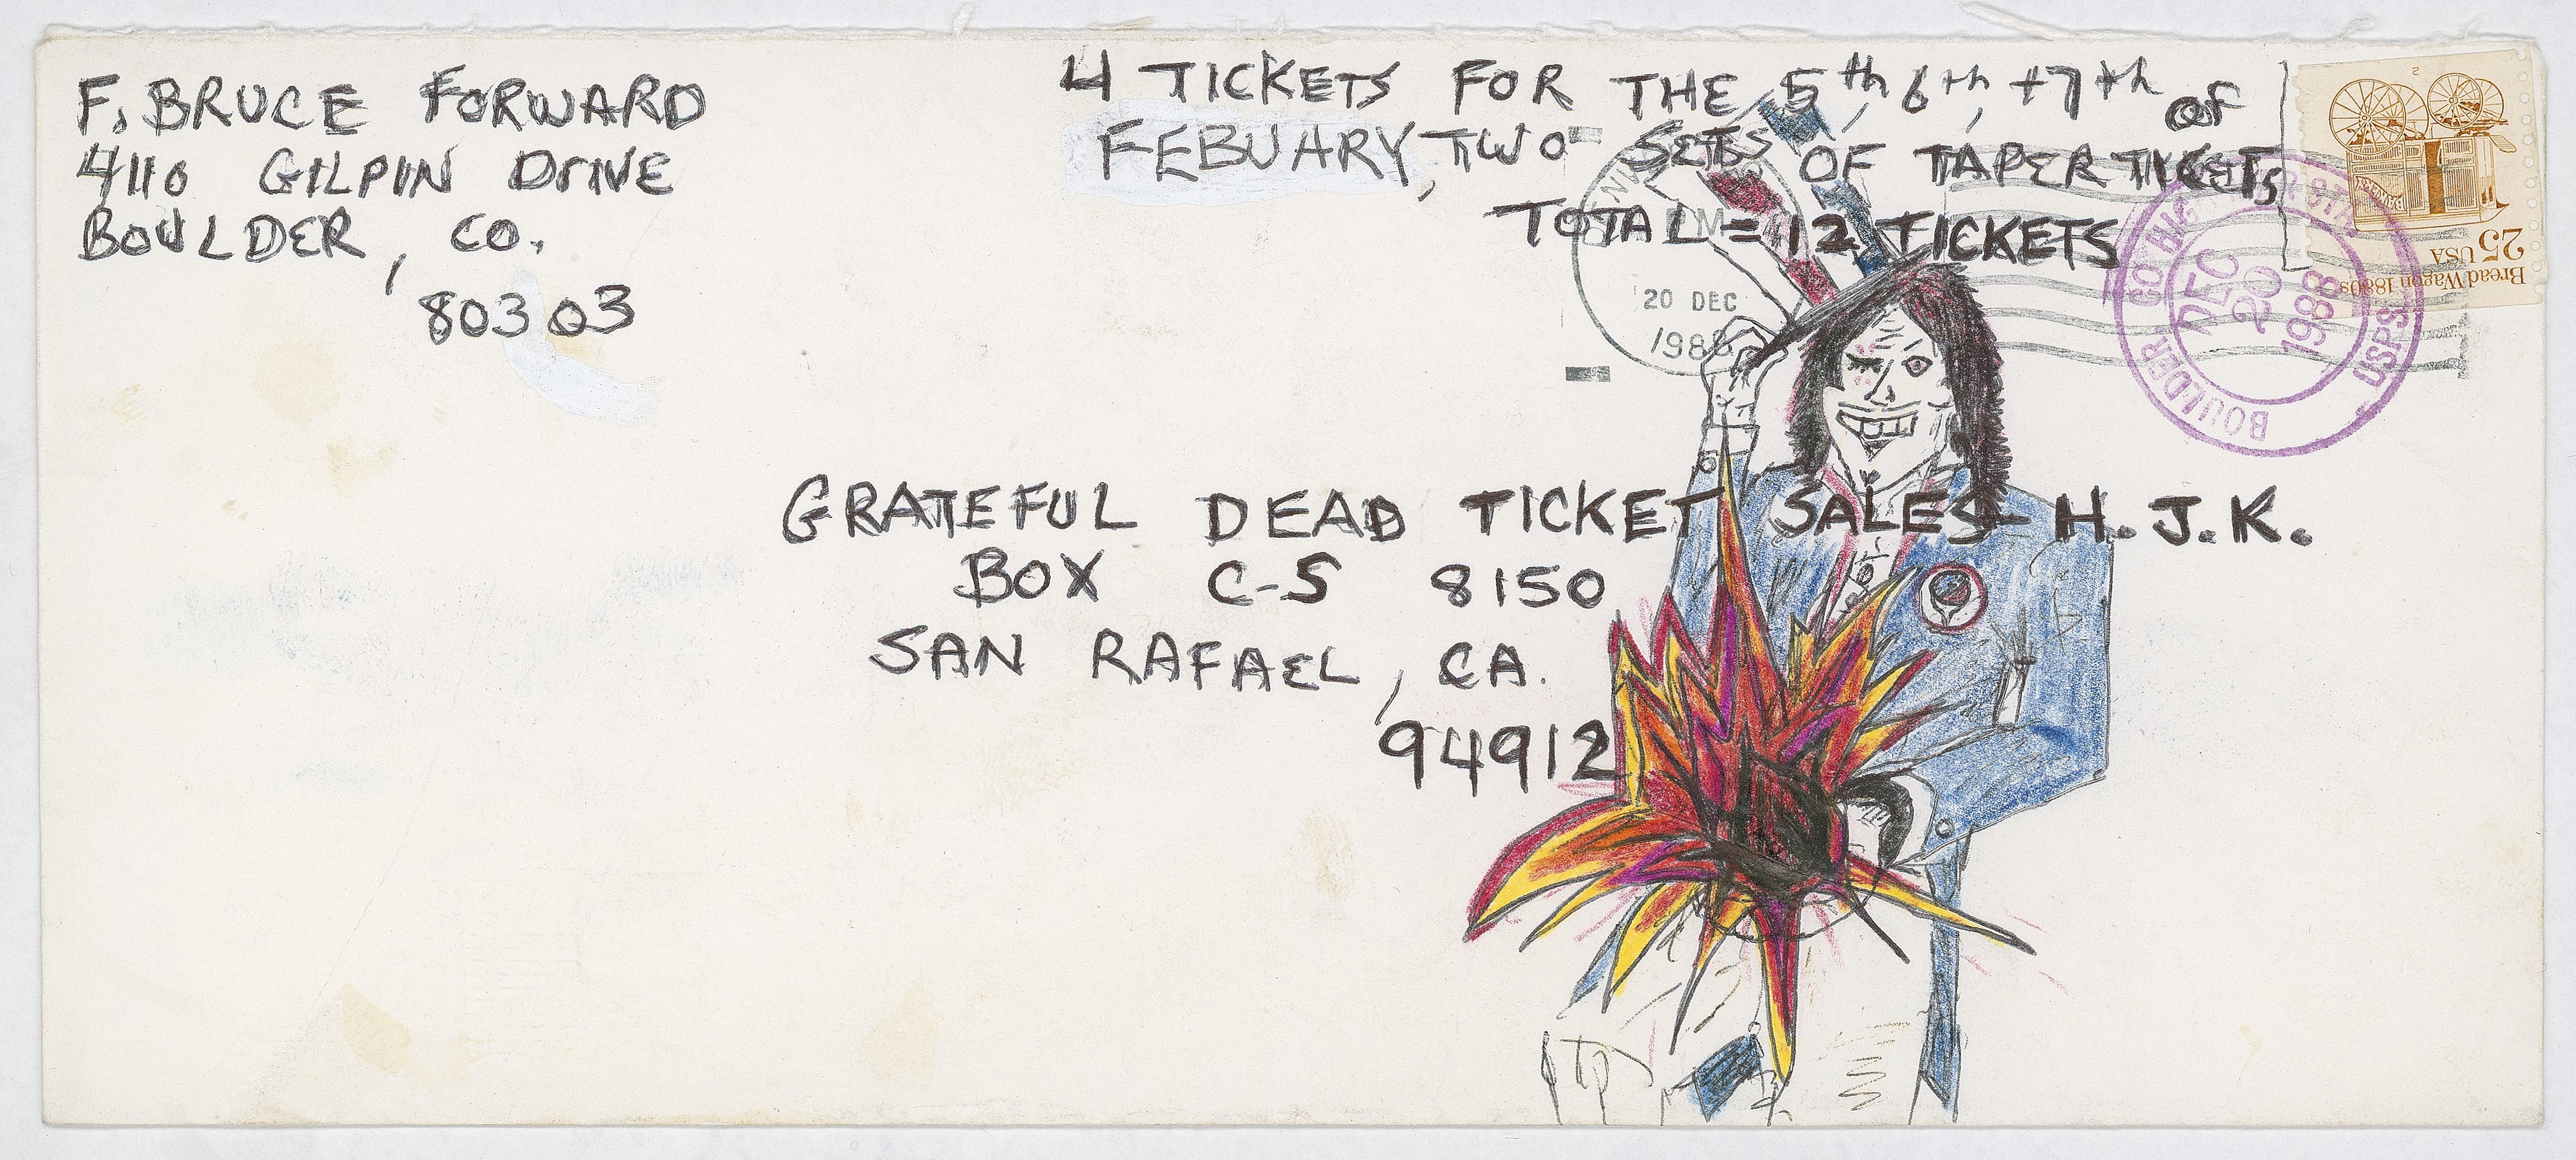 F. BRUCE FORWARD
4110 GILPIN DRIVE
BOULDER, CO.
80303
4 TICKETS FOR THE 5th, 6th, +7th OF
FEBUARY, TWO SETS OF TAPER TICKETS
TOTAL = 12 TICKETS
20 DEC
1988
25
USA
Bread Wagon 1880s
BOULDER CO
DEC
20
1988
USPS
GRATEFUL DEAD TICKET SALES - H.J.K.
BOX C-S 8150
SAN RAFAEL, CA.
94912